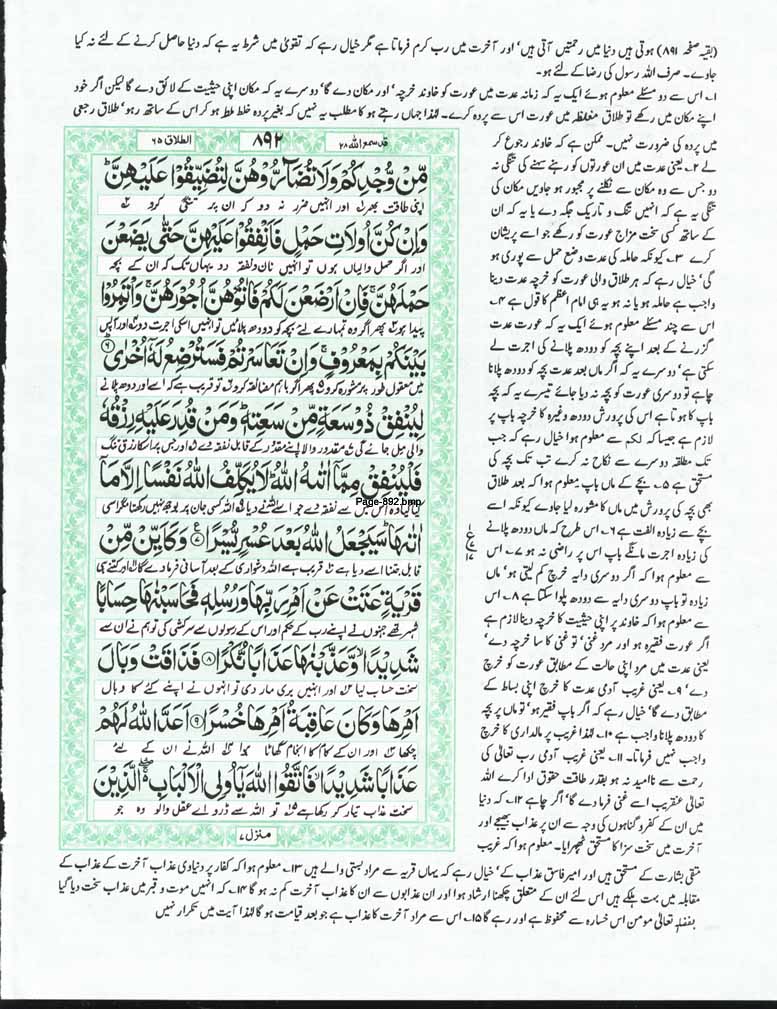 (بقیہ صفحہ ۸۹۱) ہوتی ہیں دنیا میں رحمتیں آتی ہیں' اور آخرت میں رب کرم فرماتا ہے مگر خیال رہے کہ تقویٰ میں شرط یہ ہے کہ دنیا حاصل کرنے کے لئے نہ کیا
جاوے۔ صرف اللہ رسول کی رضا کے لئے ہو۔
۱۔ اس سے دو مسئلے معلوم ہوئے ایک یہ کہ زمانہ عدت میں عورت کو خاوند خرچہ' اور مکان دے گا' دوسرے یہ کہ مکان اپنی حیثیت کے لائق دے گا لیکن اگر خود
اپنے مکان میں رکھے تو طلاق مغلظہ میں عورت اس سے پردہ کرے۔ لہٰذا جہاں رہتے ہو کا مطلب یہ نہیں کہ بغیر پردہ خلط ملط ہو کر اس کے ساتھ رہو' طلاق رجعی
میں پردہ کی ضرورت نہیں۔ ممکن ہے کہ خاوند رجوع کر
لے ۲۔ یعنی عدت میں ان عورتوں کو رہنے سہنے کی تنگی نہ
دو جس سے وہ مکان سے نکلنے پر مجبور ہو جاویں مکان کی
تنگی یہ ہے کہ انہیں تنگ و تاریک جگہ دے یا یہ کہ ان
کے ساتھ کسی سخت مزاج عورت کو رکھے جو اسے پریشان
کرے ۳۔ کیونکہ حاملہ کی عدت وضع حمل سے پوری ہو
گی' خیال رہے کہ ہر طلاق والی عورت کو خرچہ عدت دینا
واجب ہے حاملہ ہو یا نہ ہو یہ ہی امام اعظم کا قول ہے ۴۔
اس سے چند مسئلے معلوم ہوئے ایک یہ کہ عورت عدت
گزرنے کے بعد اپنے بچہ کو دودھ پلانے کی اجرت لے
سکتی ہے' دوسرے یہ کہ اگر ماں بعد عدت بچہ کو دودھ پلانا
چاہے تو دوسری عورت کو بچہ نہ دیا جائے تیسرے یہ کہ بچہ
باپ کا ہوتا ہے اس کی پرورش دودھ وغیرہ کا خرچہ باپ پر
لازم ہے جیسا کہ لکم سے معلوم ہوا خیال رہے کہ جب
تک مطلقہ دوسرے سے نکاح نہ کرے تب تک بچہ کی
مستحق ہے ۵۔ بچے کے ماں باپ معلوم ہوا کہ بعد طلاق
بھی بچہ کی پرورش میں ماں کا مشورہ لیا جاوے کیونکہ اسے
بچے سے زیادہ الفت ہے ۶۔ اس طرح کہ ماں دودھ پلانے
کی زیادہ اجرت مانگے باپ اس پر راضی نہ ہو ۷۔ اس
سے معلوم ہوا کہ اگر دوسری دایہ خرچ کم لیتی ہو' ماں
زیادہ تو باپ دوسری دایہ سے دودھ پلوا سکتا ہے ۸۔ اس
سے معلوم ہوا کہ خاوند پر اپنی حیثیت کا خرچہ دینا لازم ہے
اگر عورت فقیرہ ہو اور مرد غنی' تو غنی کا سا خرچہ دے'
یعنی عدت میں مرد اپنی حالت کے مطابق عورت کو خرچ
دے' ۹۔ یعنی غریب آدمی عدت کا خرچ اپنی بساط کے
مطابق دے گا' خیال رہے کہ اگر باپ فقیر ہو' تو ماں پر بچہ
کا دودھ پلانا واجب ہے ۱۰۔ لہٰذا غریب پر مالداری کا خرچ
واجب نہیں فرماتا۔ ۱۱۔ یعنی غریب آدمی رب تعالیٰ کی
رحمت سے ناامید نہ ہو بقدر طاقت حقوق ادا کرے اللہ
تعالیٰ عنقریب اسے غنی فرما دے گا' اگر چاہے ۱۲۔ کہ دنیا
میں ان کے کفر و گناہوں کی وجہ سے ان پر عذاب بھیجے اور
آخرت میں سخت سزا کا مستحق ٹھہرایا۔ معلوم ہوا کہ غریب
قد سمع اللہ ۲۸
۸۹۲
الطلاق ۶۵
مِّنْ وُّجْدِكُمْ وَلَا تُضَآرُّوْهُنَّ لِتُضَيِّقُوْا عَلَيْهِنَّ ؕ
اپنی طاقت بھر ۱ اور انہیں ضرر نہ دو کہ ان پر تنگی کرو ۲
وَاِنْ كُنَّ اُولَاتِ حَمْلٍ فَاَنْفِقُوْا عَلَيْهِنَّ حَتّٰى يَضَعْنَ
اور اگر حمل والیاں ہوں تو انہیں نان و نفقہ دو یہاں تک کہ ان کے بچہ
حَمْلَهُنَّ ۚ فَاِنْ اَرْضَعْنَ لَكُمْ فَاٰتُوْهُنَّ اُجُوْرَهُنَّ ۚ وَاْتَمِرُوْا
پیدا ہو ۳ پھر اگر وہ تمہارے لئے بچہ کو دودھ پلائیں تو انہیں اسکی اجرت دو ۴ اور آپس
بَيْنَكُمْ بِمَعْرُوْفٍ ۚ وَاِنْ تَعَاسَرْتُمْ فَسَتُرْضِعُ لَهٗۤ اُخْرٰى ۶
میں معقول طور پر مشورہ کرو ۵ پھر اگر باہم مضائقہ کرو ۶ تو قریب ہے کہ اسے اور دودھ پلانے
لِيُنْفِقْ ذُوْ سَعَةٍ مِّنْ سَعَتِهٖ ؕ وَمَنْ قُدِرَ عَلَيْهِ رِزْقُهٗ
والی مل جائے گی ۷ مقدور والا اپنے مقدور کے قابل نفقہ دے ۸ اور جس پر اسکا رزق تنگ
فَلْيُنْفِقْ مِمَّاۤ اٰتٰىهُ اللّٰهُ ؕ لَا يُكَلِّفُ اللّٰهُ نَفْسًا اِلَّا مَاۤ
کیا گیا وہ اس میں سے نفقہ دے جو اسے اللہ نے دیا ۹ اللہ کسی جان پر بوجھ نہیں رکھتا مگر اسی
Page-892.bmp
اٰتٰىهَا ؕ سَيَجْعَلُ اللّٰهُ بَعْدَ عُسْرٍ يُّسْرًا ۷ وَكَاَيِّنْ مِّنْ
قابل جتنا اسے دیا ہے ۱۰ قریب ہے اللہ دشواری کے بعد آسانی فرما دے گا ۱۱ اور کتنے ہی
قَرْيَةٍ عَتَتْ عَنْ اَمْرِ رَبِّهَا وَرُسُلِهٖ فَحَاسَبْنٰهَا حِسَابًا
شہر تھے جنہوں نے اپنے رب کے حکم اور اس کے رسولوں سے سرکشی کی تو ہم نے ان سے
شَدِيْدًا ۙ وَّعَذَّبْنٰهَا عَذَابًا نُّكْرًا ۸ فَذَاقَتْ وَبَالَ
سخت حساب لیا اور انہیں بری مار دی تو انہوں نے اپنے کئے کا وبال
اَمْرِهَا وَكَانَ عَاقِبَةُ اَمْرِهَا خُسْرًا ۹ اَعَدَّ اللّٰهُ لَهُمْ
چکھا اور ان کے کام کا انجام گھاٹا ہوا اللہ نے ان کے لئے
عَذَابًا شَدِيْدًا ۙ فَاتَّقُوا اللّٰهَ يٰۤاُولِى الْاَلْبَابِ ۛۖ الَّذِيْنَ
سخت عذاب تیار کر رکھا ہے تو اللہ سے ڈرو اے عقل والو وہ جو
منزل ۷
متقی بشارت کے مستحق ہیں اور امیر فاسق عذاب کے' خیال رہے کہ یہاں قریہ سے مراد بستی والے ہیں ۱۳۔ معلوم ہوا کہ کفار پر دنیاوی عذاب آخرت کے عذاب کے
مقابلہ میں بہت ہلکے ہیں اس لئے ان کے متعلق چکھنا ارشاد ہوا اور ان عذابوں سے ان کا عذاب آخرت کم نہ ہو گا ۱۴۔ کہ انہیں موت و قبر میں عذاب سخت دیا گیا
بفضلہٖ تعالیٰ مومن اس خسارہ سے محفوظ ہے اور رہے گا ۱۵۔ اس سے مراد آخرت کا عذاب ہے جو بعد قیامت ہو گا لہٰذا آیت میں تکرار نہیں